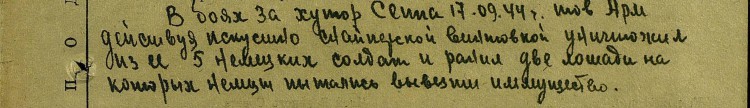 В боях за хутор Сеппа 17.09.44г. тов Арм
действуя искусно снайперской винтовкой уничтожил
из ее 5 немецких солдат и ранил две лошади на
которых немцы пытались вывезти имущество.